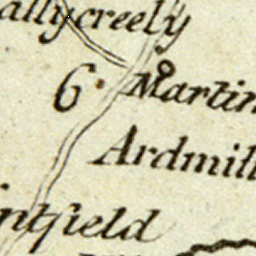 allycreely
6 Martin
Ardmill
intfield